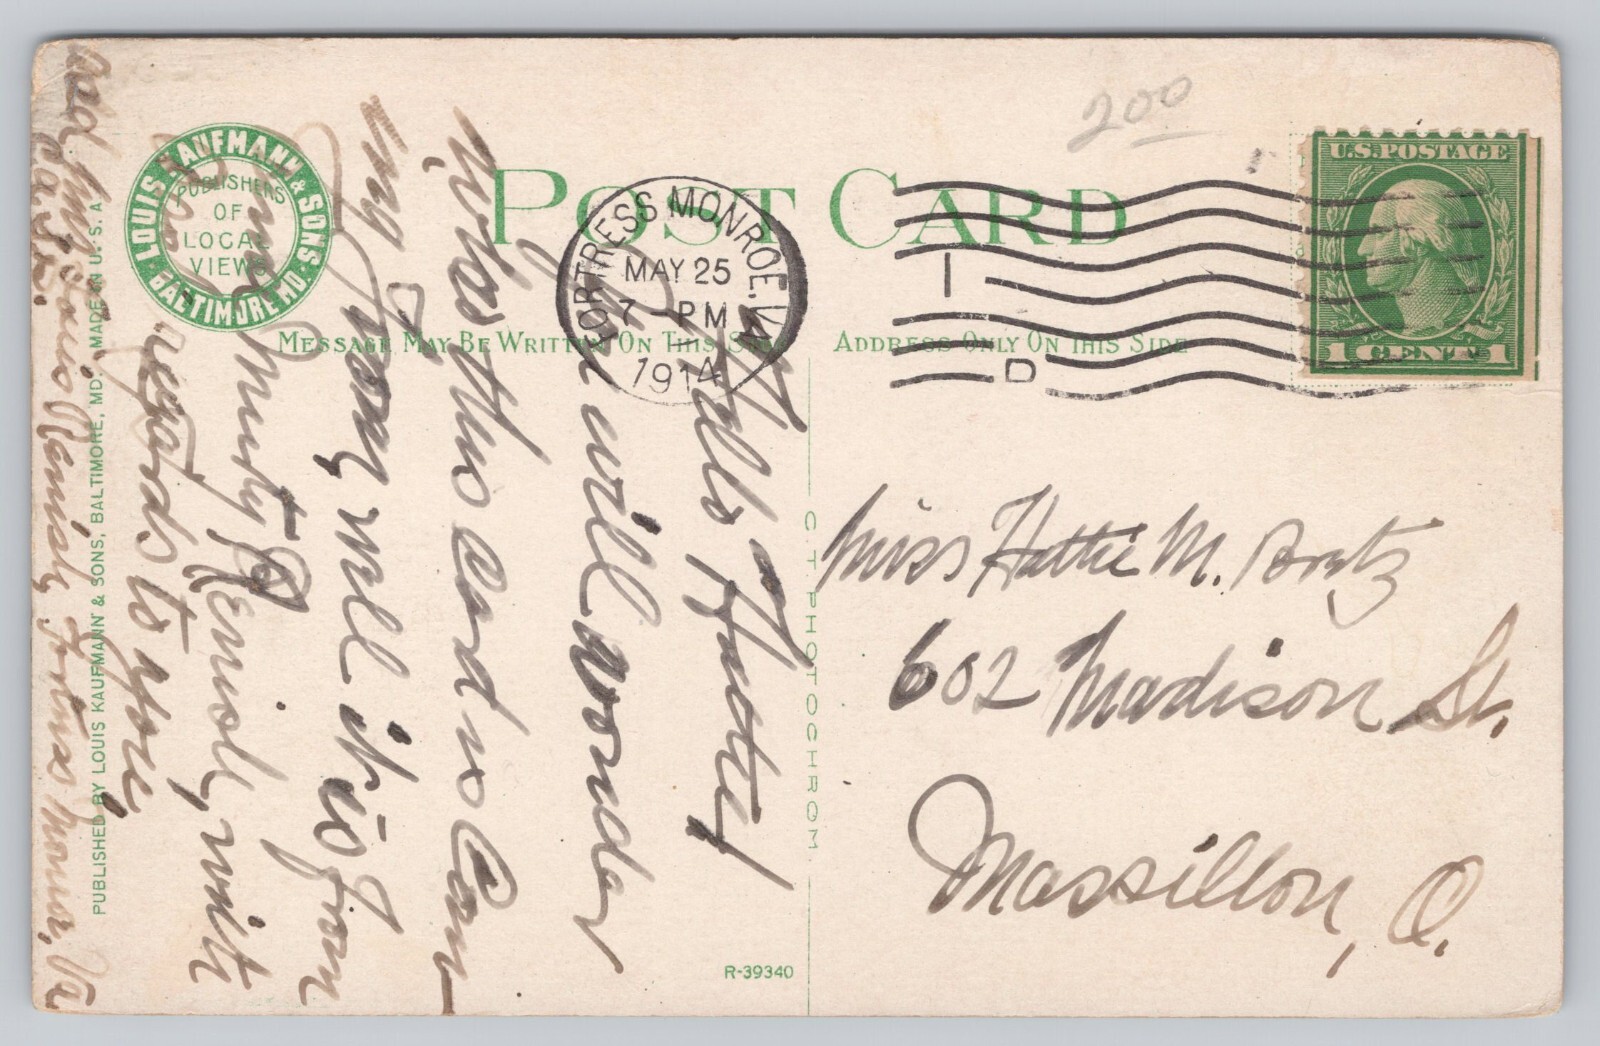 200
LOUIS KAUFMANN & SONS.
BALTIMORE MD.
PUBLISHERS
OF
LOCAL
VIEWS
POST CARD
FORTRESS MONROE. VA.
MAY 25
7 - PM
1914
U.S. POSTAGE
1 CENT 1
MESSAGE MAY BE WRITTEN ON THIS SIDE
ADDRESS ONLY ON THIS SIDE
Hello Hattie,
You will wonder
whos this card is com-
ing from, well it is from
Remish, with
regards to you.
Fortress Monroe, Va.
Miss Hattie M. Bretz
602 Madison St.
Massillon, O.
C. T. PHOTOCHROM
R-39340
PUBLISHED BY LOUIS KAUFMANN & SONS, BALTIMORE, MD. MADE IN U.S.A.